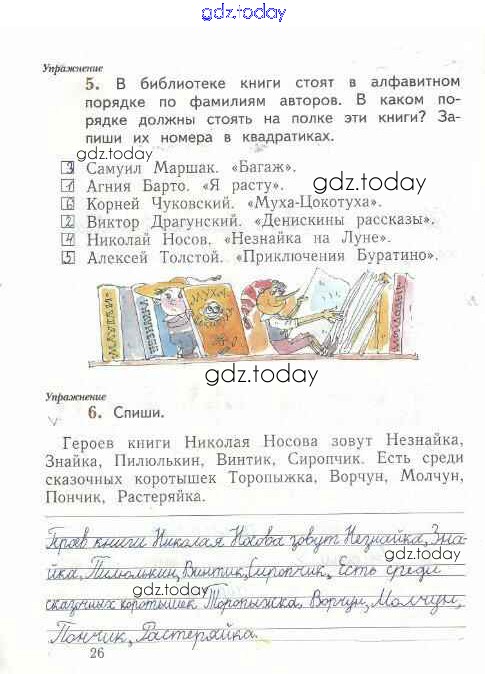 gdz.today
Упражнение
5. В библиотеке книги стоят в алфавитном
порядке по фамилиям авторов. В каком по-
рядке должны стоять на полке эти книги? За-
пиши их номера в квадратиках.
gdz.today
3 Самуил Маршак. «Багаж».
1 Агния Барто. «Я расту».
gdz.today
6 Корней Чуковский. «Муха-Цокотуха».
2 Виктор Драгунский. «Денискины рассказы».
4 Николай Носов. «Незнайка на Луне».
5 Алексей Толстой. «Приключения Буратино».
МАУГЛИ
МУХА
gdz.today
Упражнение
6. Спиши.
Героев книги Николая Носова зовут Незнайка,
Знайка, Пилюлькин, Винтик, Сиропчик. Есть среди
сказочных коротышек Торопыжка, Ворчун, Молчун,
Пончик, Растеряйка.
gdz.today
Героев книги Николая Носова зовут Незнайка, Зна-
gdz.today
йка, Пилюлькин, Винтик, Сиропчик. Есть среди
сказочных коротышек Торопыжка, Ворчун, Молчун,
Пончик, Растеряйка.
gdz.today
26